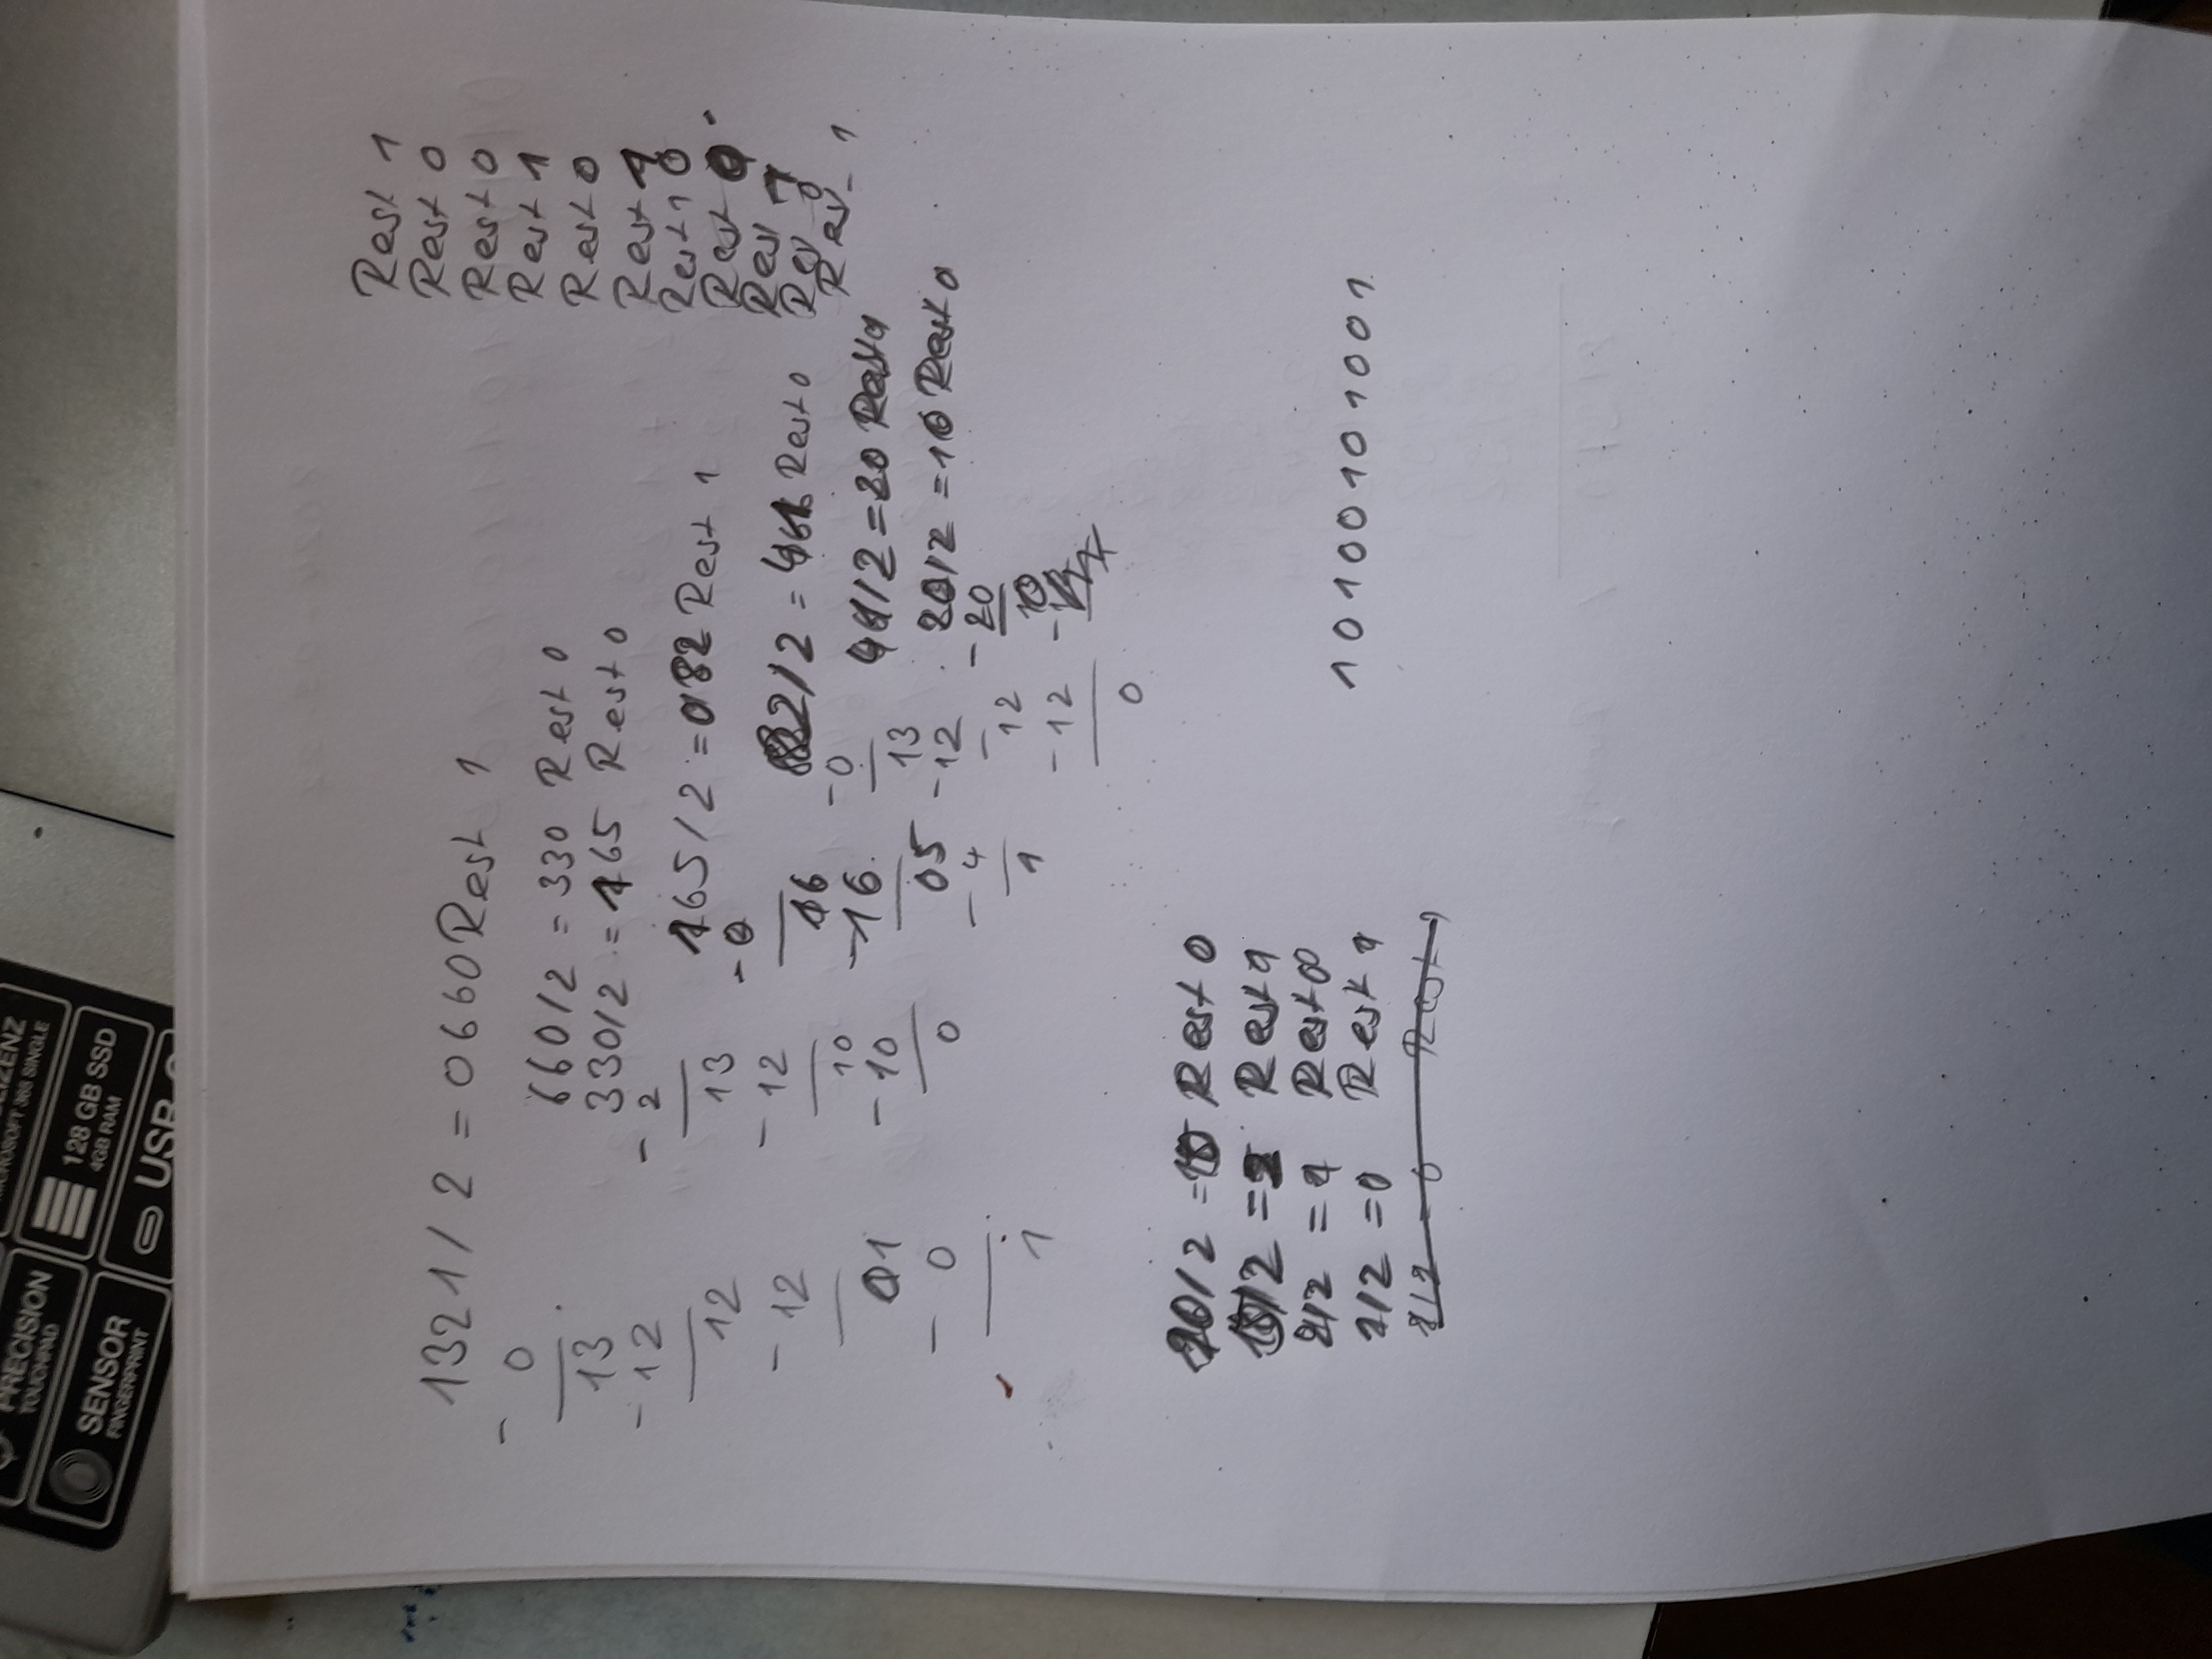 1321/2 = 0660 Rest 1
- 0
13
- 12
12
- 12
01
- 0
1
660/2 = 330 Rest 0
330/2 = 165 Rest 0
- 2
13
- 12
10
- 10
0
165/2 = 082 Rest 1
- 0
16
- 16
05
- 4
1
82/2 = 41 Rest 0
- 0
13
- 12
12
- 12
0
41/2 = 20 Rest 1
20/2 = 10 Rest 0
- 20
10
Rest 1
Rest 0
Rest 0
Rest 1
Rest 0
Rest 1
Rest 0
Rest 0
Rest 1
Rest 0
Rest 1
10/2 = Rest 0
/2 = 2 Rest 1
2/2 = 1 Rest 0
1/2 = 0 Rest 1
1/2 = 0 Rest 1
10100101001
PRECISION
TOUCHPAD
SENSOR
FINGERPRINT
MICROSOFT 365 SINGLE
128 GB SSD
4GB RAM
USB